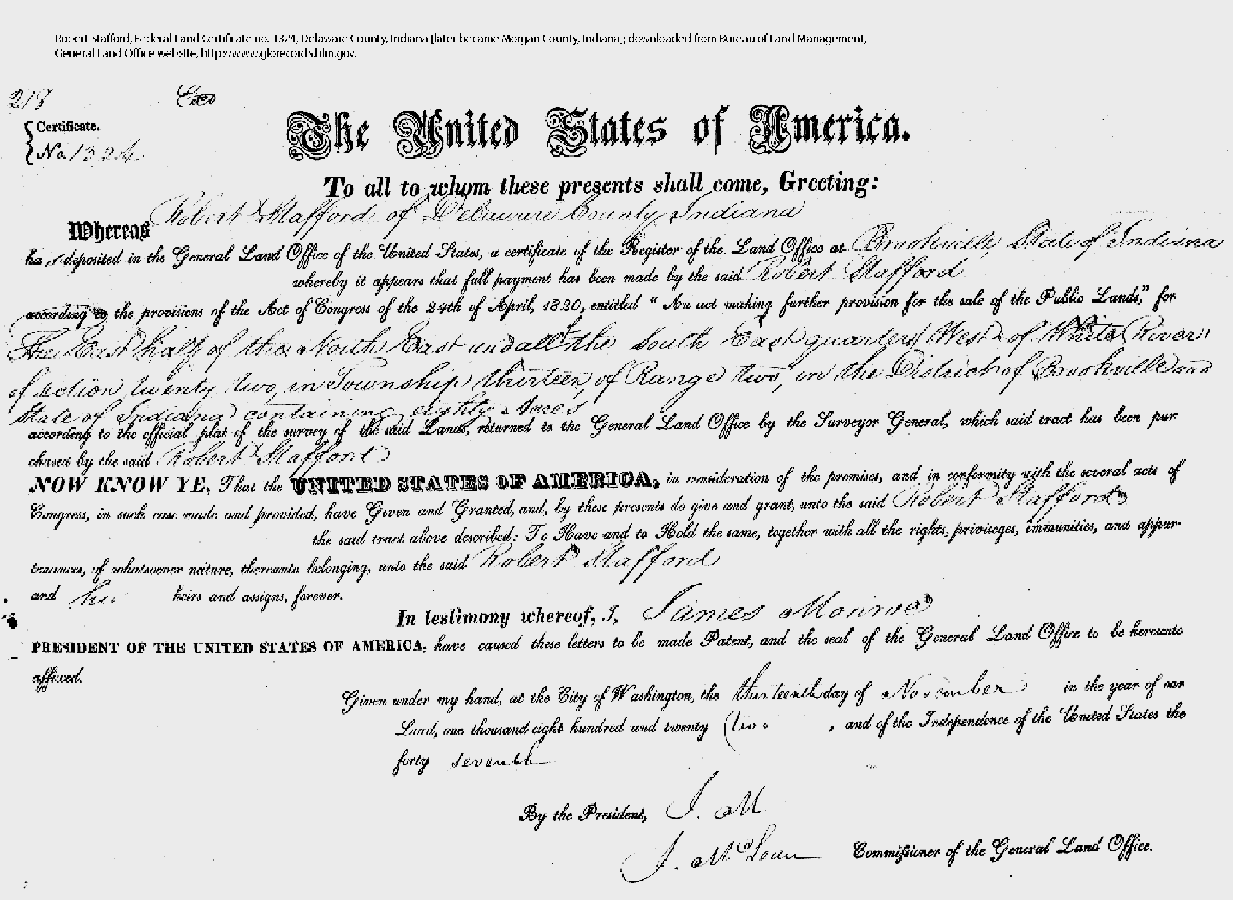 Robert Stafford, Federal Land Certificate no. 1324, Delaware County, Indiana [later became Morgan County, Indiana]; downloaded from Bureau of Land Management,
General Land Office website, http://www.glorecords.blm.gov.
218
Certificate.
No. 1324
The United States of America.
To all to whom these presents shall come, Greeting:
Whereas Robert Stafford of Delaware County Indiana
has deposited in the General Land Office of the United States, a certificate of the Register of the Land Office at Brookville, State of Indiana
whereby it appears that full payment has been made by the said Robert Stafford
according to the provisions of the Act of Congress of the 24th of April, 1820, entitled “An act making further provision for the sale of the Public Lands,” for
The East half of the North East and all the South East quarters West of White River
of section twenty two, in Township thirteen, of Range two, in the District of Brookville and
State of Indiana containing eighty Acres
according to the official plat of the survey of the said Lands, returned to the General Land Office by the Surveyor General, which said tract has been pur
chased by the said Robert Stafford
NOW KNOW YE, That the UNITED STATES OF AMERICA, in consideration of the promises, and in conformity with the several acts of
Congress, in such case made and provided, have Given and Granted, and, by these presents do give and grant, unto the said Robert Stafford
the said tract above described: To Have and to Hold the same, together with all the rights, privileges, immunities, and appur-
tenances, of whatsoever nature, thereunto belonging, unto the said Robert Stafford
and his heirs and assigns, forever.
In testimony whereof, I, James Monroe
PRESIDENT OF THE UNITED STATES OF AMERICA, have caused these letters to be made Patent, and the seal of the General Land Office to be hereunto
affixed.
Given under my hand, at the City of Washington, the thirteenth day of November in the year of our
Lord, one thousand eight hundred and twenty two , and of the Independence of the United States the
forty seventh
By the President, J. M
J. McLean Commissioner of the General Land Office.